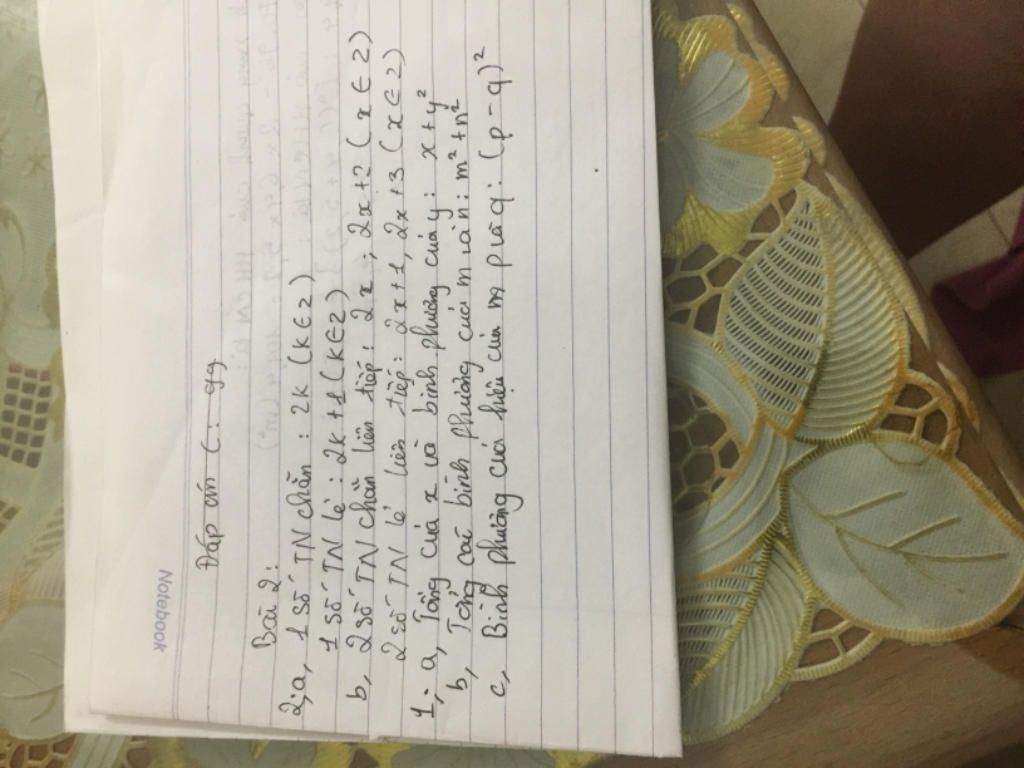 Notebook
Đáp án C: 99
Bài 2:
2, a, 1 số TN chẵn : 2k (k ∈ Z)
1 số TN lẻ : 2k +1 (k ∈ Z)
b, 2 số TN chẵn liên tiếp : 2x ; 2x+2 (x ∈ Z)
2 số TN lẻ liên tiếp : 2x+1, 2x+3 (x ∈ Z)
1, a, Tổng của x và bình phương của y : x+y²
b, Tổng các bình phương của m và n : m² + n²
c, Bình phương của hiệu của m p và q : (p - q)²